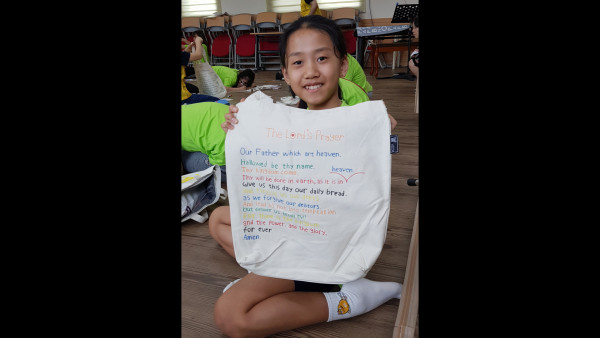 The Lord's Prayer
Our Father which art heaven.
heaven
Hallowed be thy name.
Thy kingdom come
Thy will be done in earth, as it is in
Give us this day our daily bread.
as we forgive our debtors.
And the power, and the glory.
For ever
Amen